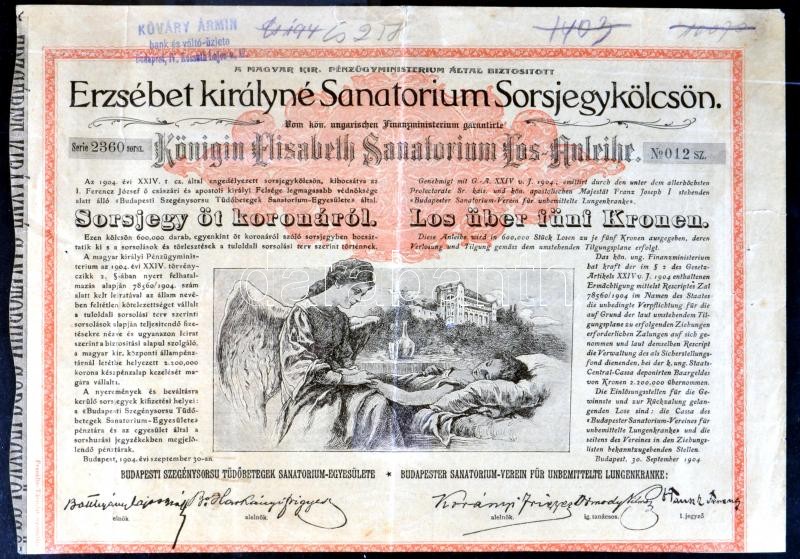 KŐVÁRY ÁRMIN
bank és váltó-üzlete
Budapest, IV. Kossuth Lajos-u.
1403
A MAGYAR KIR. PÉNZÜGYMINISTERIUM ÁLTAL BIZTOSITOTT
Erzsébet királyné Sanatorium Sorsjegykölcsön.
Vom kön. ungarischen Finanzministerium garantirte
Serie 2360 sorsz.
Königin Elisabeth Sanatorium Los-Anleihe.
No 012 sz.
Az 1904. évi XXIV. t cz. által engedélyezett sorsjegykölcsön, kibocsátva az
I. Ferencz József ő császári és apostoli királyi Felsége legmagasabb védnöksége
alatt álló «Budapesti Szegénysorsu Tüdőbetegek Sanatorium-Egyesülete» által.
Sorsjegy öt koronáról.
Ezen kölcsön 600,000 darab, egyenkint öt koronáról szóló sorsjegyben bocsát-
tatik ki s a sorsolások és törlesztések a tuloldali sorsolási terv szerint történnek.
A magyar királyi Pénzügyminis-
terium az 1904. évi XXIV. törvény-
czikk 2. §-ában nyert felhatal-
mazás alapján 78560/1904. szám
alatt kelt leiratával az állam nevé-
ben feltétlen kötelezettséget vállalt
a tuloldali sorsolási terv szerinti
sorsolások alapján teljesitendő fize-
tésekre nézve és ugyanazon leirat
szerint a biztositási alapul szolgáló,
a magyar kir. központi állampénz-
tárnál letétbe helyezett 2.200,000
korona készpénzalap kezelését ma-
gára vállalta.
A nyeremények és beváltásra
kerülő sorsjegyek kifizetési helyei:
a «Budapesti Szegénysorsu Tüdő-
betegek Sanatorium-Egyesülete»
pénztára és az egyesület által a
sorshuzási jegyzékekben megjelö-
lendő pénztárak.
Budapest, 1904. évi szeptember 30-án.
Genehmigt mit G.-A. XXIV v. J. 1904; emittirt durch den unter dem allerhöchsten
Protectorate Sr. kais. und kön. apostolischen Majestät Franz Joseph I stehenden
«Budapester Sanatorium-Verein für unbemittelte Lungenkranke».
Los über fünf Kronen.
Diese Anleihe wird in 600,000 Stück Losen zu je fünf Kronen ausgegeben, deren
Verlosung und Tilgung gemäss dem umstehenden Tilgungsplane erfolgt.
Das kön. ung. Finanzministerium
hat kraft der im § 2 des Gesetz-
Artikels XXIV v. J. 1904 enthaltenen
Ermächtigung mittelst Rescriptes Zal
78560/1904 im Namen des Staates
die unbedingte Verpflichtung für die
auf Grund der laut umstehendem Til-
gungsplane zu erfolgenden Ziehungen
erforderlichen Zahlungen auf sich ge-
nommen und laut demselben Rescript
die Verwaltung des als Sicherstellungs-
fond dienenden, bei der k. ung. Staats-
Central-Cassa deponirten Baargeldes
von Kronen 2.200,000 übernommen.
Die Einlösungsstellen für die Ge-
winnste und zur Rückzalung gelan-
genden Lose sind: die Cassa des
«Budapester Sanatorium-Vereines für
unbemittelte Lungenkranke» und die
seitens des Vereines in den Ziehungs-
listen bekanntzugebenden Stellen.
Budapest, 30. September 1904
BUDAPESTI SZEGÉNYSORSU TÜDŐBETEGEK SANATORIUM-EGYESÜLETE * BUDAPESTER SANATORIUM-VEREIN FÜR UNBEMITTELTE LUNGENKRANKE:
elnök.
alelnök.
alelnök.
ig. tanácsos.
I. jegyző